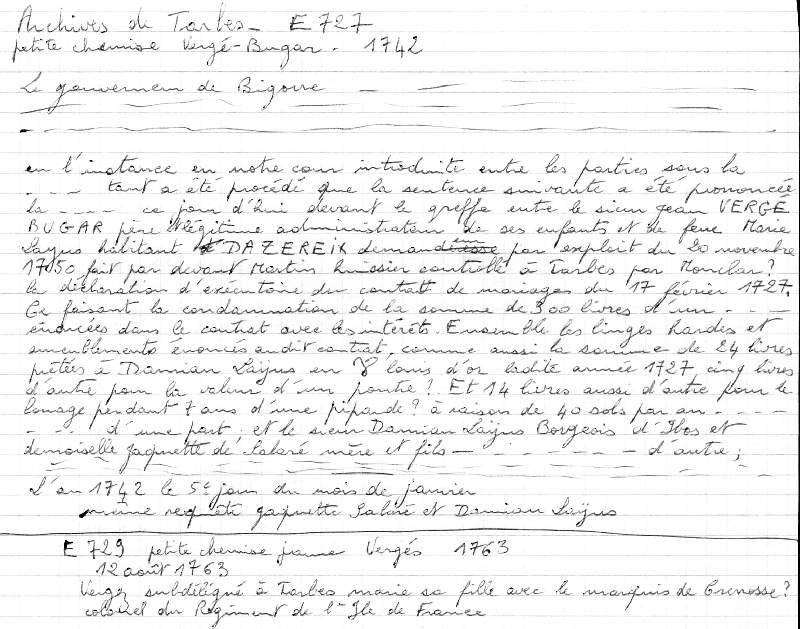 Archives de Tarbes - E 727
petite chemise Vergé-Bugar - 1742
Le gouverneur de Bigorre - - -
en l'instance en notre cour introduite entre les parties sous la
- - - tant a été procédé que la sentence suivante a été prononcée
la - - - - ce jour d'hui devant le greffe entre le sieur jean VERGÉ
BUGAR père et légitime administrateur de ses enfants et de feue Marie
Laÿus habitant DAZEREIX deman par exploit du 20 novembre
1750 fait par devant Martin huissier contrôlé à Tarbes par Monclar?
la déclaration d'exécutoire du contatt de mariages du 17 février 1727.
Ce faisant la condamnation de la somme de 300 livres d'un - - -
énoncées dans le contrat avec les intérêts. Ensemble les linges hardes et
ameublements énoncés audit contrat, comme aussi la somme de 24 livres
prêtées à Damian Laÿus en louis d'or ladite année 1727, cinq livres
d'autre pour la valeur d'un poutre? Et 14 livres aussi d'autre pour le
louage pendant 7 ans d'une piparde? à raison de 40 sols par an - - - -
- - d'une part, et le sieur Damian Laÿus Borgeois d'Ibos et
demoiselle jaquette de Salaré mère et fils - - - - - - d'autre;
L'an 1742 le 5e jour du mois de janvier
même requête jaquette Salaré et Damian Laÿus
E 729 petite chemise jaune Vergés 1763
12 août 1763
Vergez subdélégué à Tarbes marie sa fille avec le marquis de Crenosse?
colonel du Régiment de l'Ile de France